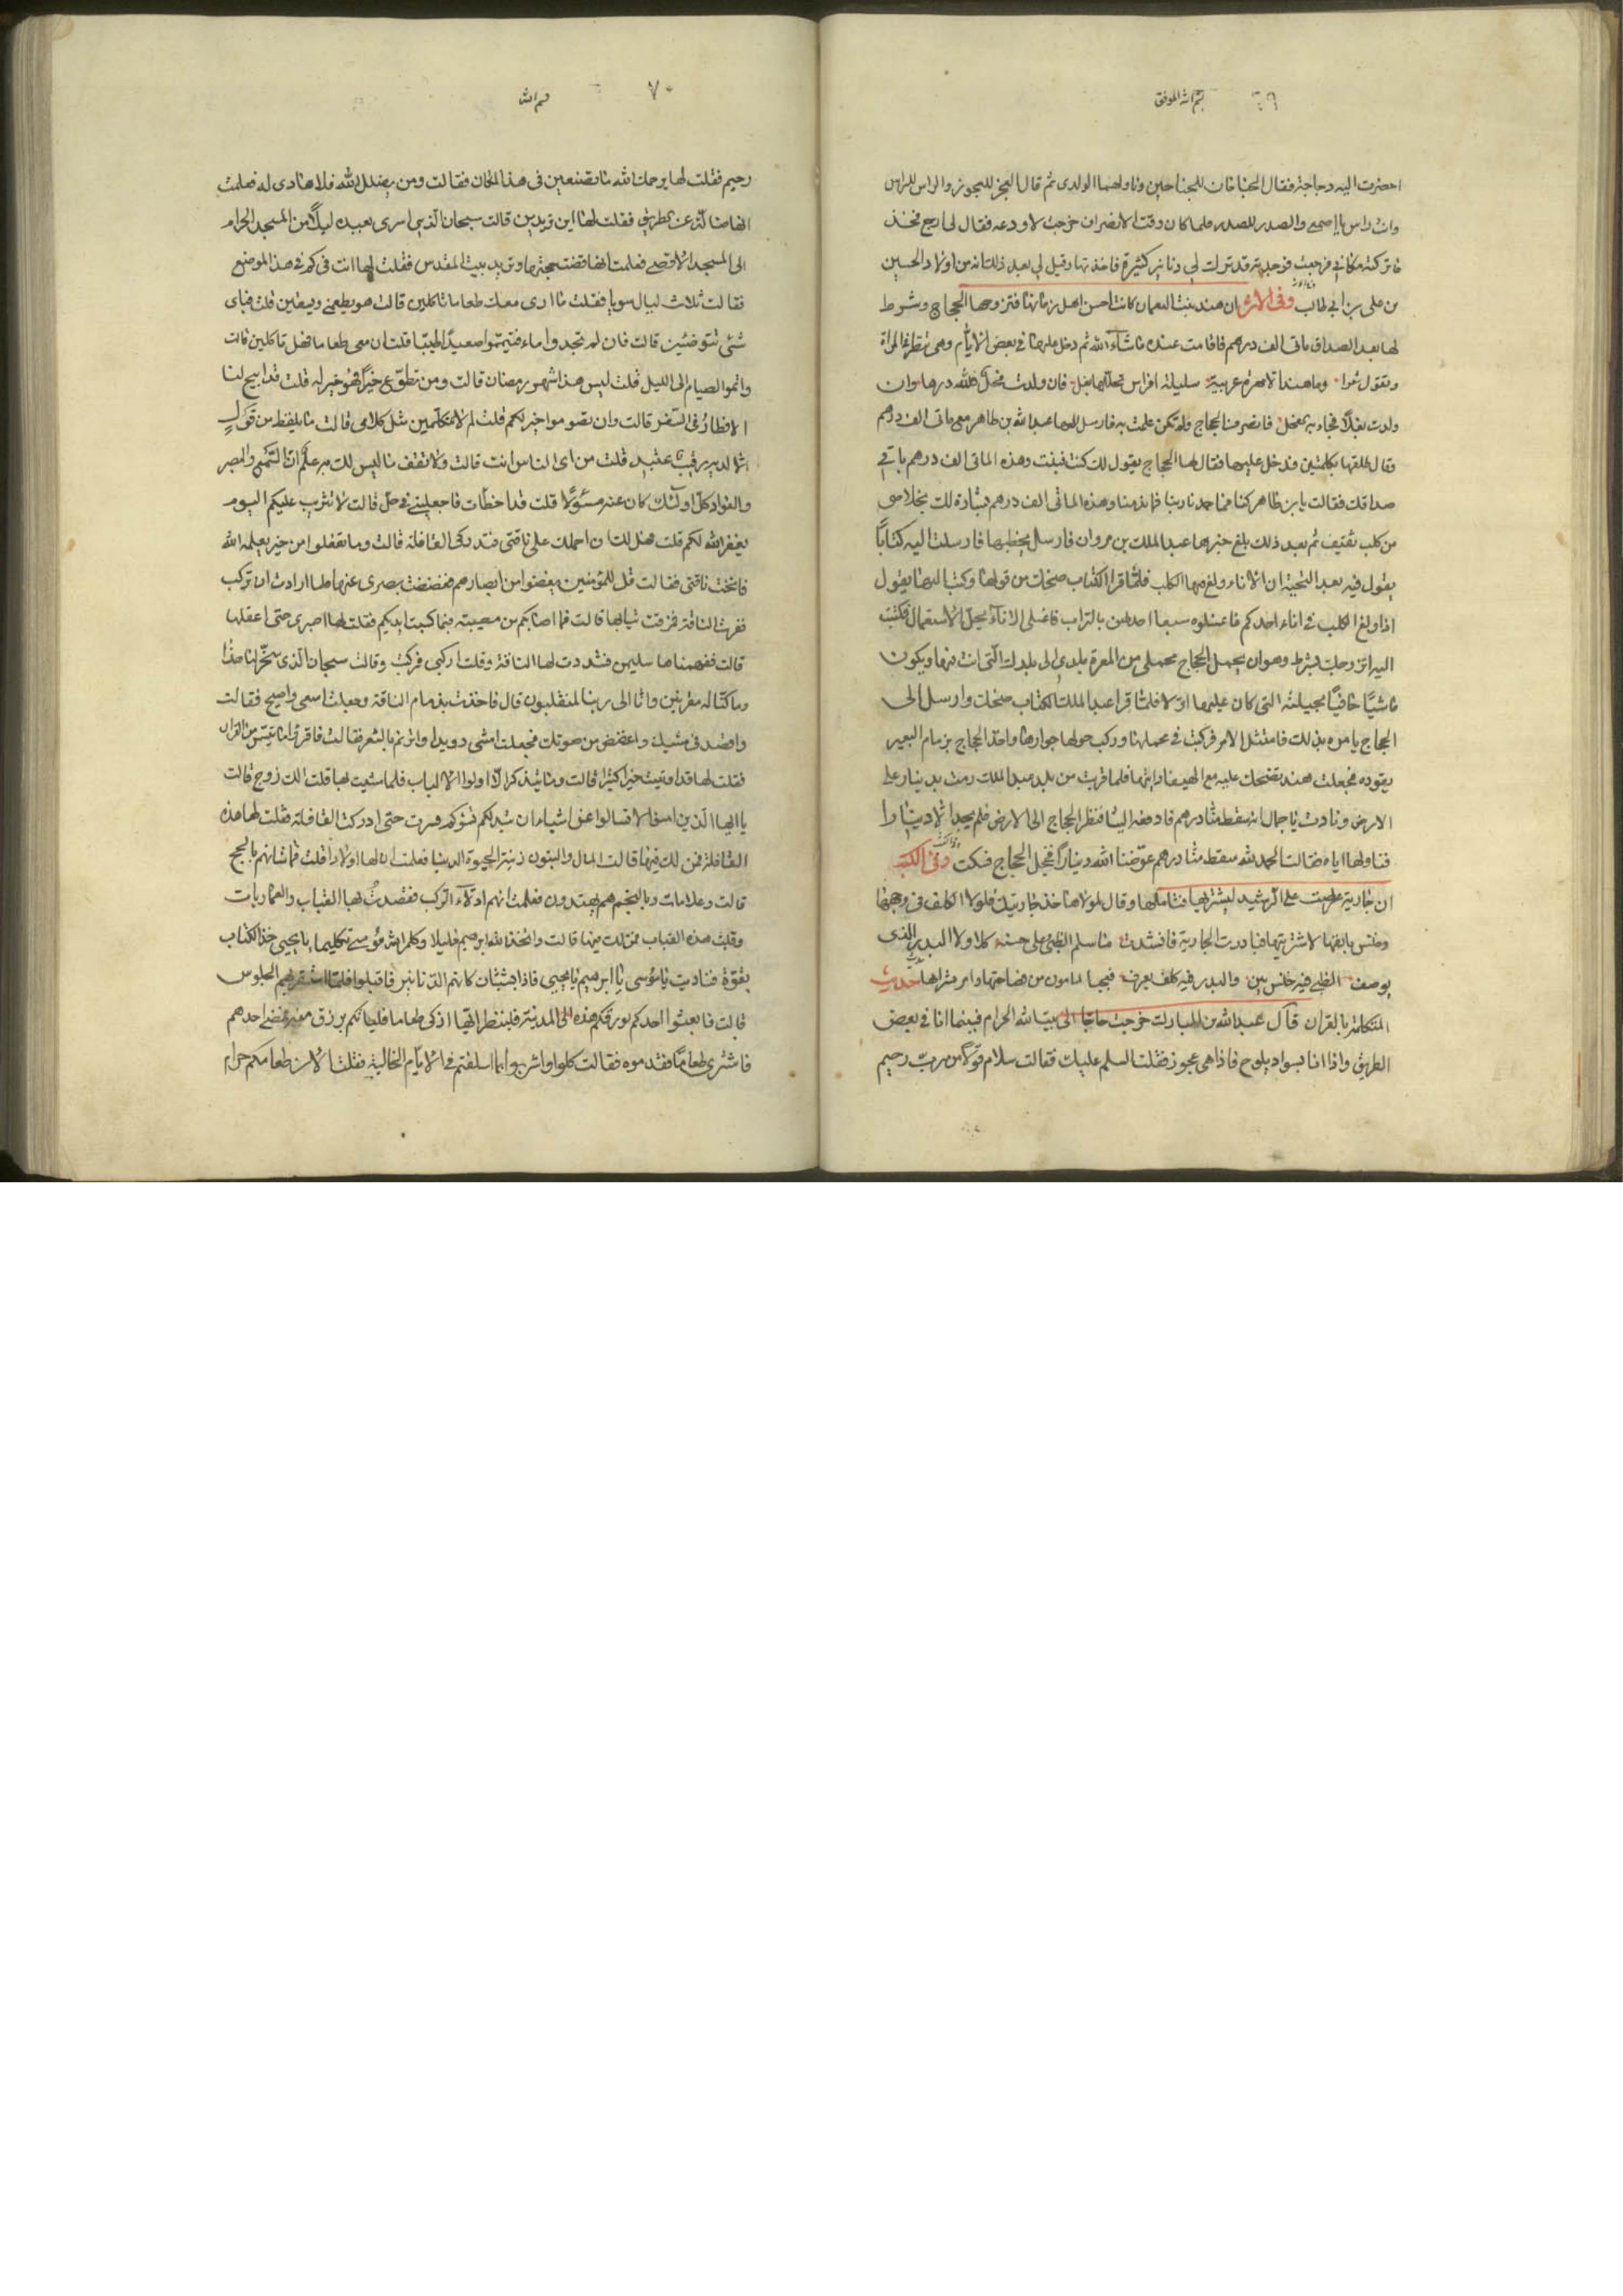 ٦٩
بسم الله الموفق
احضرت اليه دجاجة فقال الجناحان للجناحين وناولهما لولدى ثم قال العجز للعجوز والراس للراس
وانت راس يا اصمعى والصدر للصدر فلما كان وقت الانصراف خرجت لاودعه فقال لى ارجع فخذ
ما تركته مكانى فرجعت فوجدته قد ترك لى دنانير كثيرة فاخذتها وقيل لى بعد ذلك انه من اولاد الحسين
بن على بن ابى طالب وفى الاثر ان هند بنت النعمان كانت احسن اهل زمانها فتزوجها الحجاج وشرط
لها بعد الصداق ماتى الف درهم فاقامت عنده ماشاء الله ثم دخل عليها فى بعض الايام وهى تنظر فى المراة
وتقول شعرا وما هند الا مهرة عربية سليلة افراس تحللها بغل فان ولدت فحلا فلله درها وان
ولدت بغلا فجاء به بغل فانصرف الحجاج ولم تكن علمت به فارسل اليها عبد الله بن طاهر معى ماتى الف درهم
وقال طلقها بكلمتين فدخل عليها فقال لها الحجاج يقول لك كنت فبنت وهذه الماتى الف درهم باقى
صداقك فقالت يا بن طاهر كنا فما حمدنا وبنا فما ندمنا وهذه الماتى الف درهم بشارة لك بخلاصى
من كلب ثقيف ثم بعد ذلك بلغ خبرها عبد الملك بن مروان فارسل يخطبها فارسلت اليه كتابا
يقول فيه بعد التحية ان الاناء ولغ فيها الكلب فلما قرا الكتاب ضحك من قولها وكتب اليها يقول
اذا ولغ الكلب فى اناء احدكم فاغسلوه سبعا احداهن بالتراب فاغسلى الاناء يحل الاستعمال فكتبت
اليه اتزوجك بشرط وهو ان يحمل الحجاج محملى من المعرة بلدى الى بلدك التى انت فيها ويكون
ماشيا حافيا بحليته التى كان عليها اولا فلما قرا عبد الملك الكتاب ضحك وارسل الى
الحجاج يامره بذلك فامتثل الامر فركبت فى محملها وركب حولها جوارها واخذ الحجاج بزمام البعير
يقوده فجعلت هند تضحك عليه مع الهيفا دايتها فلما قربت من بلد عبد الملك رمت بدينار على
الارض ونادت يا جمال انه سقط منا درهم فادفعه الينا فنظر الحجاج الى الارض فلم يجد الا دينارا
فناولها اياه فقالت الحمد لله سقط منا درهم عوضنا الله دينارا فخجل الحجاج فسكت وفى الكتب
ان جارية عرضت على الرشيد ليشتريها فتاملها وقال لمولاها خذ جاريتك فلولا الكلف فى وجهها
وخنس بانفها لاشتريتها فبادرت الجارية فانشدت ما سلم الظبى على حسنه كلا ولا البدر الذى
يوصف الظبى فيه خنس بين والبدر فيه كلف يعرف فعجب المامون من فصاحتها وامر بشراها حديث
المتكلمة بالقران قال عبد الله بن المبارك خرجت حاجا الى بيت الله الحرام فبينما انا فى بعض
الطريق واذا انا بسواد يلوح فاذا هى عجوز فقلت السلم عليك فقالت سلام قولا من رب رحيم
٧٠
رحيم فقلت لها يرحمك الله ما تصنعين فى هذا المكان فقالت ومن يضلل الله فلا هادى له فعلمت
انها ضالة عن الطريق فقلت لها اين تريدين قالت سبحان الذى اسرى بعبده ليلا من المسجد الحرام
الى المسجد الاقصى فعلمت انها قضت حجتها وتريد بيت المقدس فقلت لها انت فى كم فى هذا الموضع
فقالت ثلاث ليال سويا فقلت ما ارى معك طعاما تاكلين قالت هو يطعمنى ويسقين قلت فباى
شئ تتوضئين قالت فان لم تجدوا ماء فتيمموا صعيدا طيبا قلت ان معى طعاما فضل تاكلين قالت
واتموا الصيام الى الليل قلت ليس هذا شهر رمضان قالت ومن تطوع خيرا فهو خير له قلت قد ابيح لنا
الافطار فى السفر قالت وان تصوموا خير لكم قلت لم لا تتكلمين مثل كلامى قالت ما يلفظ من قول
الا لديه رقيب عتيد قلت من اى الناس انت قالت ولا تقف ما ليس لك به علم ان السمع والبصر
والفواد كل اولئك كان عنه مسئولا قلت قد اخطات فاجعلينى فى حل قالت لا تثريب عليكم اليوم
يغفر الله لكم قلت فهل لك ان احملك على ناقتى فتدركى القافلة قالت وما تفعلوا من خير يعلمه الله
فانخت ناقتى فقالت قل للمؤمنين يغضوا من ابصارهم فغضضت بصرى عنها فلما ارادت ان تركب
نفرت الناقة فمزقت ثيابها قالت فما اصابكم من مصيبة فبما كسبت ايديكم فقلت لها اصبرى حتى اعقلها
قالت ففهمناها سليمن فشددت لها الناقة وقلت اركبى فركبت وقالت سبحان الذى سخر لنا هذا
وما كنا له مقرنين وانا الى ربنا لمنقلبون قال فاخذت بزمام الناقة وجعلت اسعى واصيح فقالت
واقصد فى مشيك واغضض من صوتك فجعلت امشى رويدا واترنم بالشعر فقالت فاقرؤا ما تيسر من القران
فقلت لها قد اوتيت خيرا كثيرا قالت وما يتذكر الا اولوا الالباب فلما مشيت بها قلت الك زوج قالت
يا ايها الذين امنوا لا تسالوا عن اشياء ان تبد لكم تسؤكم فسرت حتى ادركت القافلة فقلت لها هذه
القافلة فمن لك فيها قالت المال والبنون زينة الحيوة الدنيا فعلمت ان لها اولادا قلت فما شانهم بالحج
قالت وعلامات وبالنجم هم يهتدون فعلمت انهم ادلاء الركب فقصدت بها القباب والعماريات
وقلت هذه القباب فمن لك فيها قالت واتخذ الله ابرهيم خليلا وكلم الله موسى تكليما يا يحيى خذ الكتاب
بقوة فناديت يا موسى يا ابرهيم يا يحيى فاذا بشبان كانهم الدنانير فاقبلوا فلما استقر بهم الجلوس
قالت فابعثوا احدكم بورقكم هذه الى المدينة فلينظر ايها ازكى طعاما فلياتكم برزق منه فمضى احدهم
فاشترى طعاما فقدموه فقالت كلوا واشربوا بما اسلفتم فى الايام الخالية فقلت الان طعامكم حرام